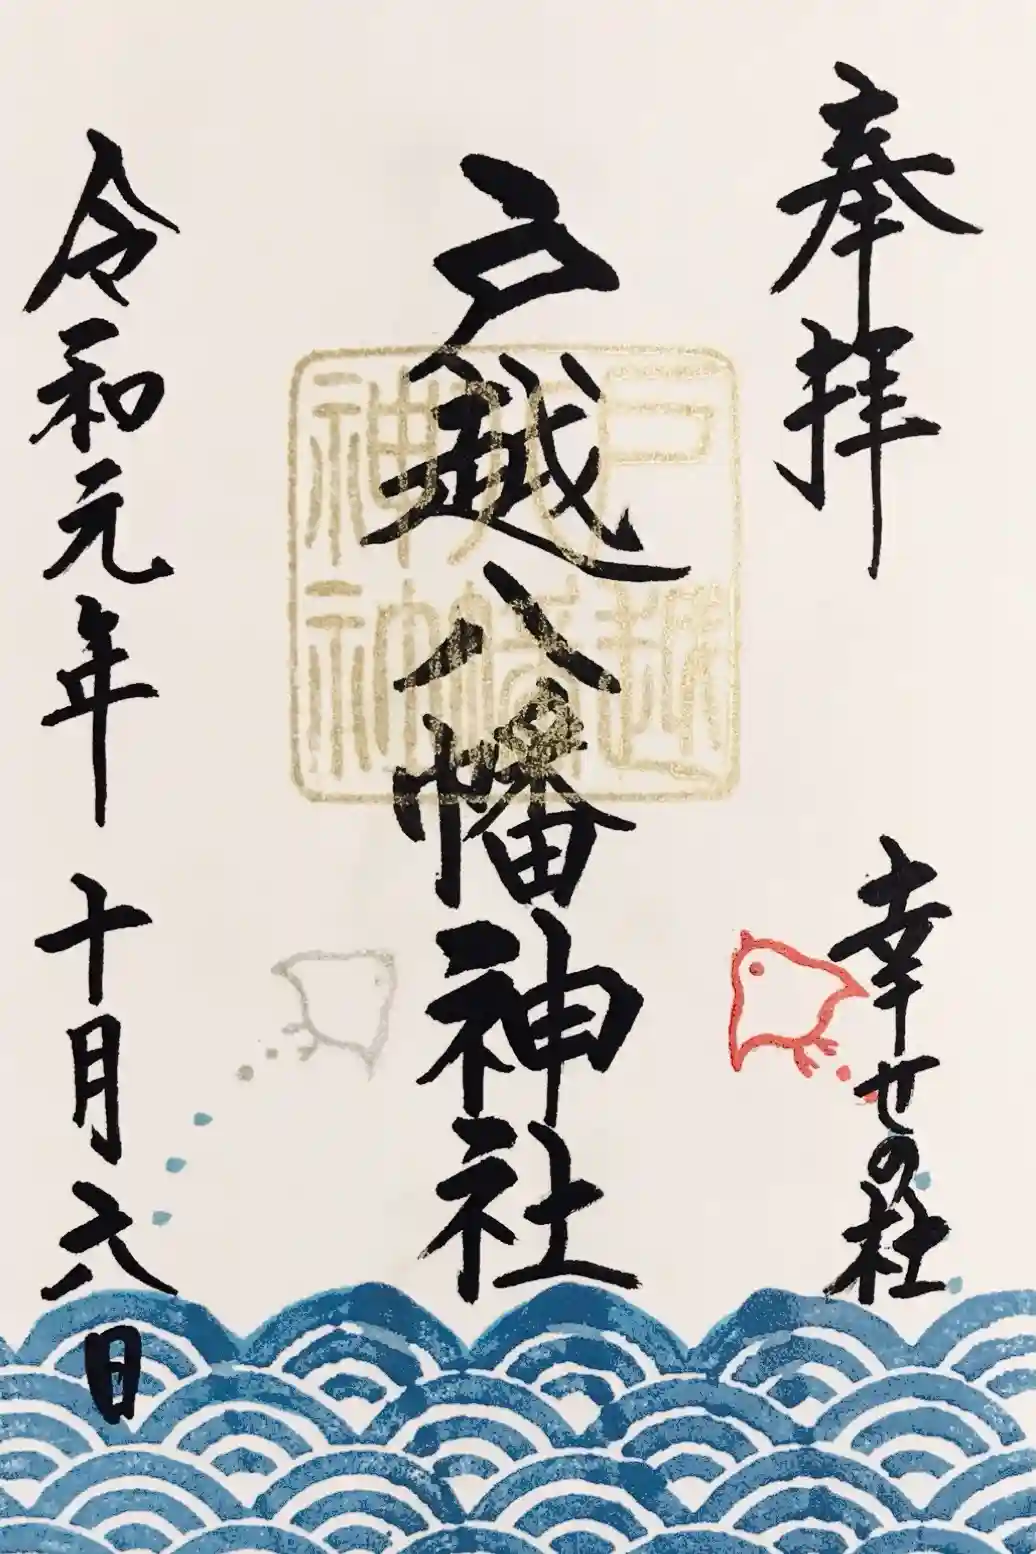 奉拝
幸せの杜
戸越八幡神社
戸越
八幡
神社
令和元年十月六日